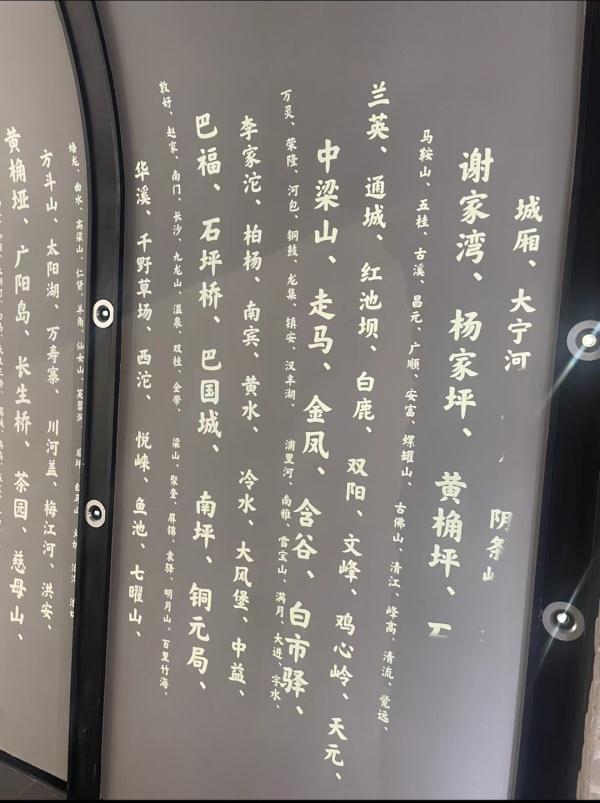 城厢、大宁河
阴条
谢家湾、杨家坪、黄桷坪、
马鞍山、五桂、古溪、昌元、广顺、安富、螺罐山、古佛山、清江、峰高、清流、觉远、
兰英、通城、红池坝、白鹿、双阳、文峰、鸡心岭、天元、
中梁山、走马、金凤、含谷、白市驿、
万灵、荣隆、河包、铜鼓、龙集、镇安、汉丰湖、浦里河、南雅、雪宝山、满月、大进、字水、
李家沱、柏杨、南宾、黄水、冷水、大风堡、中益、
巴福、石坪桥、巴国城、南坪、铜元局、
敦好、赵家、南门、长沙、九龙山、温泉、双桂、金带、梁山、聚奎、屏锦、袁驿、明月山、百里竹海、
华溪、千野草场、西沱、悦崃、鱼池、七曜山、
蟠龙、曲水、高梁山、仁贤、羊角、仙女山、芙蓉洞、后坪、白马山
方斗山、太阳湖、万寿寨、川河盖、梅江河、洪安、
黄桷垭、广阳岛、长生桥、茶园、慈母山、